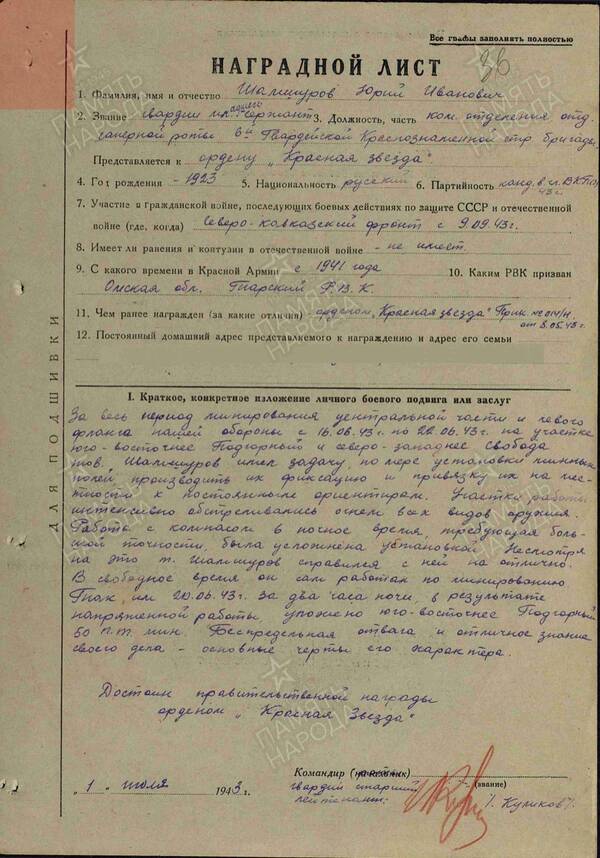 Все графы заполнять полностью
36
НАГРАДНОЙ ЛИСТ
1. Фамилия, имя и отчество Шалшуров Юрий Иванович
2. Звание гвардии мл. сержант 3. Должность, часть ком. отделения отд.
саперной роты 6й Гвардейской Краснознаменной стр. бригады
Представляется к ордену „Красная звезда"
4. Год рождения - 1923 5. Национальность русский 6. Партийность канд. в чл. ВКП(б)
43 г.
7. Участие в гражданской войне, последующих боевых действиях по защите СССР и отечественной
войне (где, когда) Северо-кавказский фронт с 9.09.43г.
8. Имеет ли ранения и контузии в отечественной войне - не имеет.
9. С какого времени в Красной Армии с 1941 года 10. Каким РВК призван
Омская обл. Р.В.К.
11. Чем ранее награжден (за какие отличия) орденом „Красная звезда" Прик. № 014/н.
от 5.05.43г.
12. Постоянный домашний адрес представляемого к награждению и адрес его семьи
ДЛЯ ПОДШИВКИ
I. Краткое, конкретное изложение личного боевого подвига или заслуг
За весь период минирования центральной части и левого
фланга нашей обороны с 16.06.43г. по 22.06.43г. на участке
юго-восточнее Подгорный и северо-западнее Свобода
тов. Шалшуров имел задачу, по мере установки минных
полей производить их фиксацию и привязку их на мест-
ности к постоянным ориентирам. Участки работы
интенсивно обстреливались огнем всех видов оружия.
Работа с компасом в ночное время, требующая боль-
шой точности, была усложнена установкой. Несмотря
на это т. Шалшуров справился с ней на отлично.
В свободное время он сам работал по минированию
Так, им 20.06.43г. за два часа ночи, в результате
напряженной работы, уложено юго-восточнее Подгорный
50 п.т. мин. Беспредельная отвага и отличное знание
своего дела - основные черты его характера.
Достоин правительственной награды
орденом „Красная Звезда"
Командир (начальник)
гвардии старший (звание)
лейтенант: /. Куликов /.
„1" июля 1943 г.
ПАМЯТЬ НАРОДА